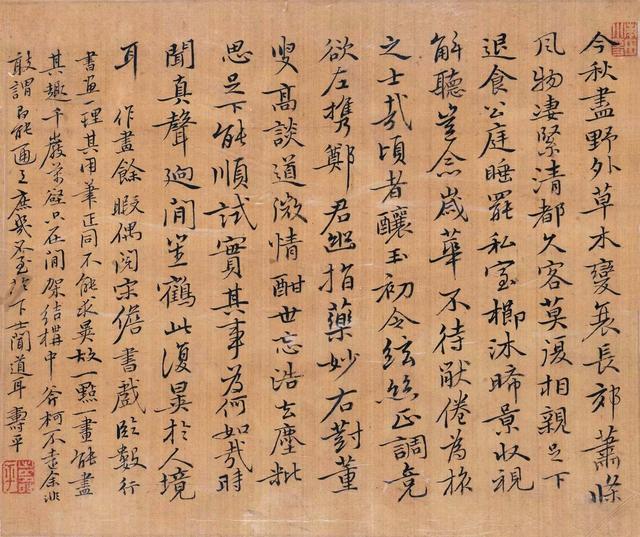 今秋盡野外草木變衰長郊蕭條
風物淒緊清都久客莫復相親足下
退食公庭睡罷私室櫛沐晞景收視
解聽豈念歲華不待猒倦為旅
之士哉頃者釀玉初令絃絲正調竟
欲左携鄭君幽指藥妙右對董
叟高談道微情酣世忘浩玄塵粃
思足下能順試實其事為何如哉時
聞真聲迥間笙鶴此復異於人境
耳
作畫餘暇偶閱宋儋書戲臨數行
書畫一理其用筆正同不能求異故一點一畫能盡
其趣千巖萬壑只在間架結構中斧柯不遠余非
敢謂即能通之庶幾不至於下士聞道耳 壽平